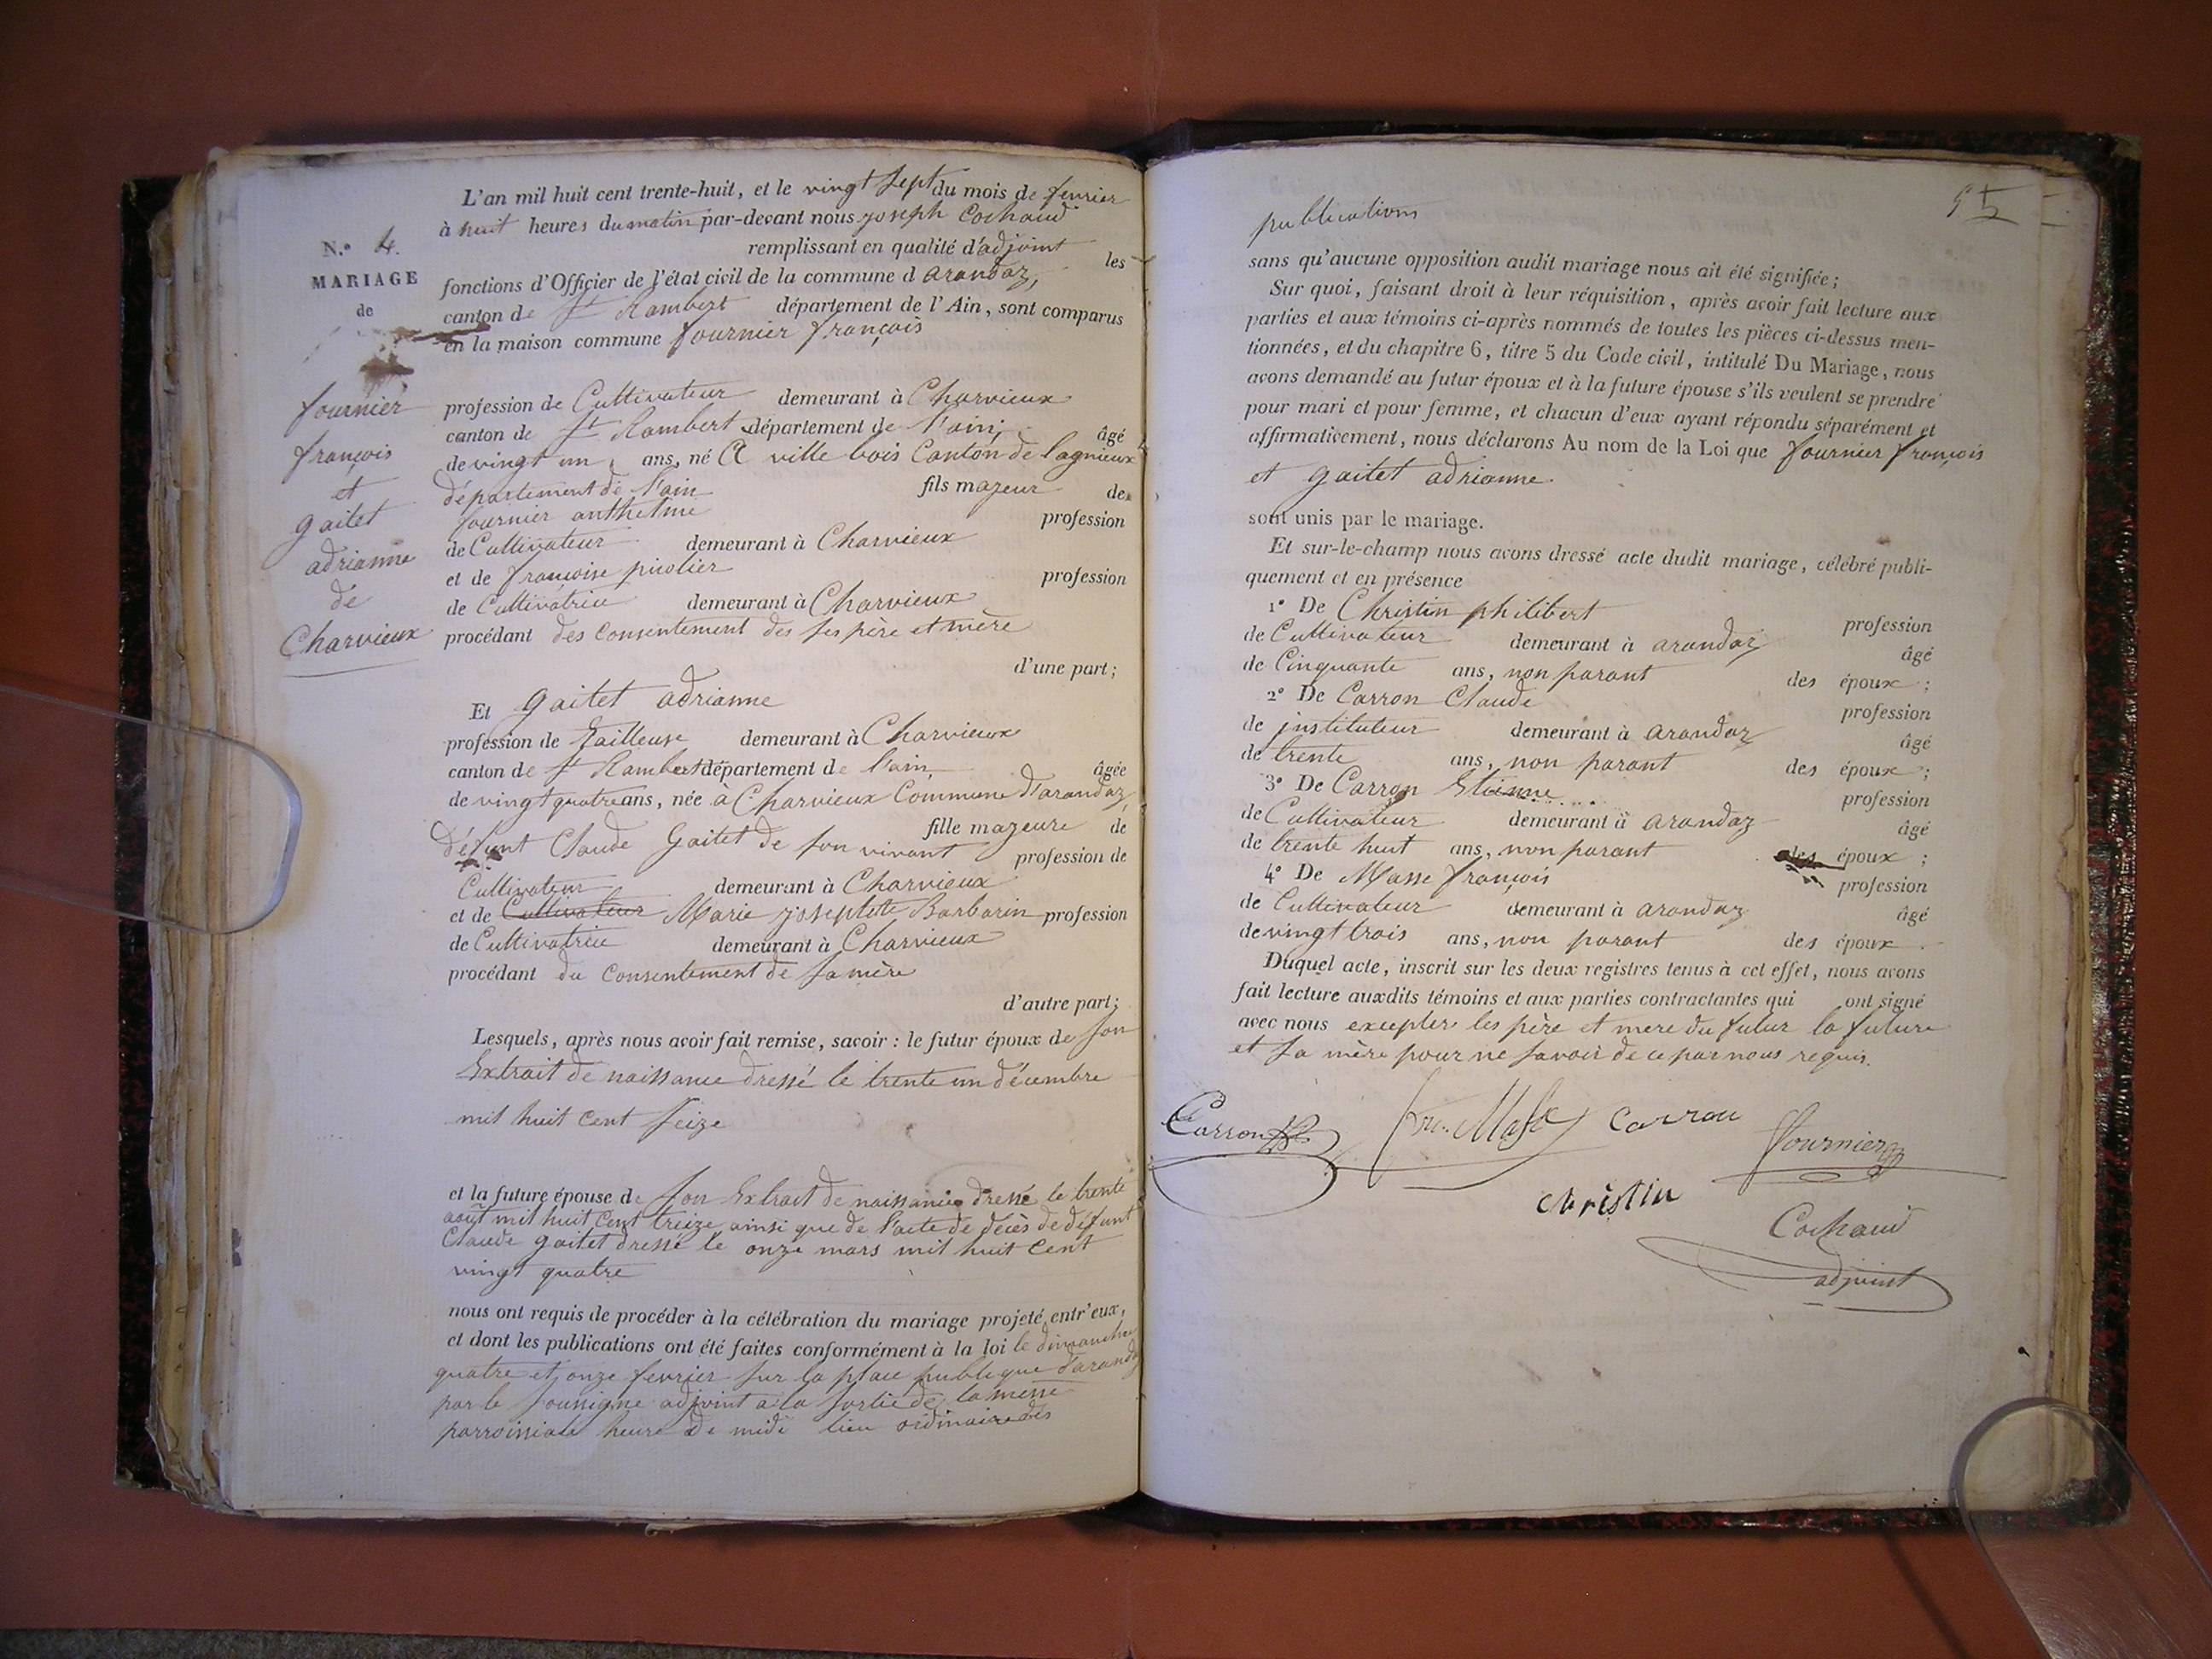 L'an mil huit cent trente-huit, et le vingt sept du mois de fevrier
à huit heures du matin par-devant nous joseph Cochaud
remplissant en qualité d'adjoint les
fonctions d'Officier de l'état civil de la commune d arandaz,
canton de St Rambert département de l'Ain, sont comparus
en la maison commune fournier françois
N.° 4.
MARIAGE
de
fournier
françois
et
gaitet
adrianne
de
Charvieux
profession de Cultivateur demeurant à Charvieux
canton de St Rambert département de l'ain, âgé
de vingt un ans, né A ville bois Canton de lagnieux
département de l'ain fils majeur de
fournier anthelme profession
de Cultivateur demeurant à Charvieux
et de françoise profession
de Cultivatrice demeurant à Charvieux
procédant des consentement des ses père et mère
d'une part;
Et gaitet adrianne
profession de tailleuse demeurant à Charvieux
canton de St Rambert département de l'ain, âgée
de vingt quatre ans, née à Charvieux Commune d'arandaz,
fille majeure de
défunt Claude Gaitet de son vivant profession de
Cultivateur demeurant à Charvieux
et de Cultivateur Marie josephte Barbarin profession
de Cultivatrice demeurant à Charvieux
procédant du consentement de sa mère
d'autre part;
Lesquels, après nous avoir fait remise, savoir : le futur époux de son
Extrait de naissance dressé le trente un décembre
mil huit cent seize
et la future épouse de son Extrait de naissance dressé le trente
août mil huit cent treize, ainsi que de l'acte de décès de défunt
Claude gaitet dressé le onze mars mil huit cent
vingt quatre
nous ont requis de procéder à la célébration du mariage projeté entr'eux,
et dont les publications ont été faites conformément à la loi le dimanche
quatre et onze fevrier sur la place publique d'arandaz
par le soussigne adjoint a la sortie de la messe
parroissiale heure de midi lieu ordinaire des
55
publications
sans qu'aucune opposition audit mariage nous ait été signifiée;
Sur quoi, faisant droit à leur réquisition, après avoir fait lecture aux
parties et aux témoins ci-après nommés de toutes les pièces ci-dessus men-
tionnées, et du chapitre 6, titre 5 du Code civil, intitulé Du Mariage, nous
avons demandé au futur époux et à la future épouse s'ils veulent se prendre
pour mari et pour femme, et chacun d'eux ayant répondu séparément et
affirmativement, nous déclarons Au nom de la Loi que fournier françois
et gaitet adrianne.
sont unis par le mariage.
Et sur-le-champ nous avons dressé acte dudit mariage, célébré publi-
quement et en présence
1° De Christin philibert profession
de Cultivateur demeurant à arandaz âgé
de Cinquante ans, non parant des époux ;
2° De Carron Claude profession
de instituteur demeurant à arandaz âgé
de trente ans, non parant des époux ;
3° De Carron Etienne profession
de Cultivateur demeurant à arandaz âgé
de trente huit ans, non parant des époux ;
4° De Masse françois profession
de Cultivateur demeurant à arandaz âgé
de vingt trois ans, non parant des époux .
Duquel acte, inscrit sur les deux registres tenus à cet effet, nous avons
fait lecture auxdits témoins et aux parties contractantes qui ont signé
avec nous excepter les père et mere du futur la future
et sa mère pour ne savoir de ce par nous requis.
Carron Masse carron fournier
christin
Cochaud
adjoint